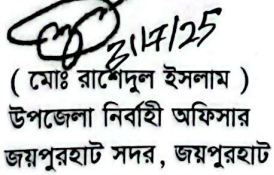 3/7/25
( মোঃ রাশেদুল ইসলাম )
উপজেলা নির্বাহী অফিসার
জয়পুরহাট সদর, জয়পুরহাট